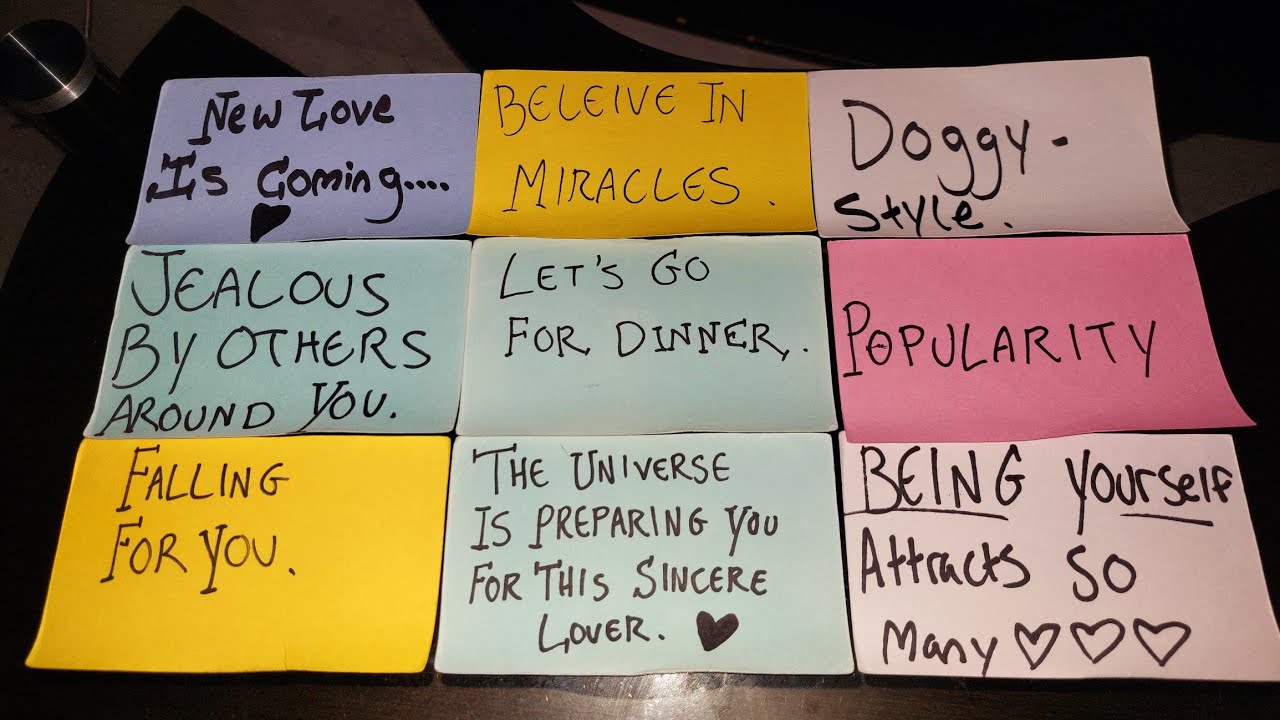 New Love
Is Coming....
BELEIVE IN
MIRACLES.
Doggy-
Style.
JEALOUS
BY OTHERS
AROUND YOU.
LET'S GO
FOR DINNER.
POPULARITY
FALLING
FOR YOU.
THE UNIVERSE
IS PREPARING YOU
FOR THIS SINCERE
LOVER.
BEING yourself
Attracts SO
Many